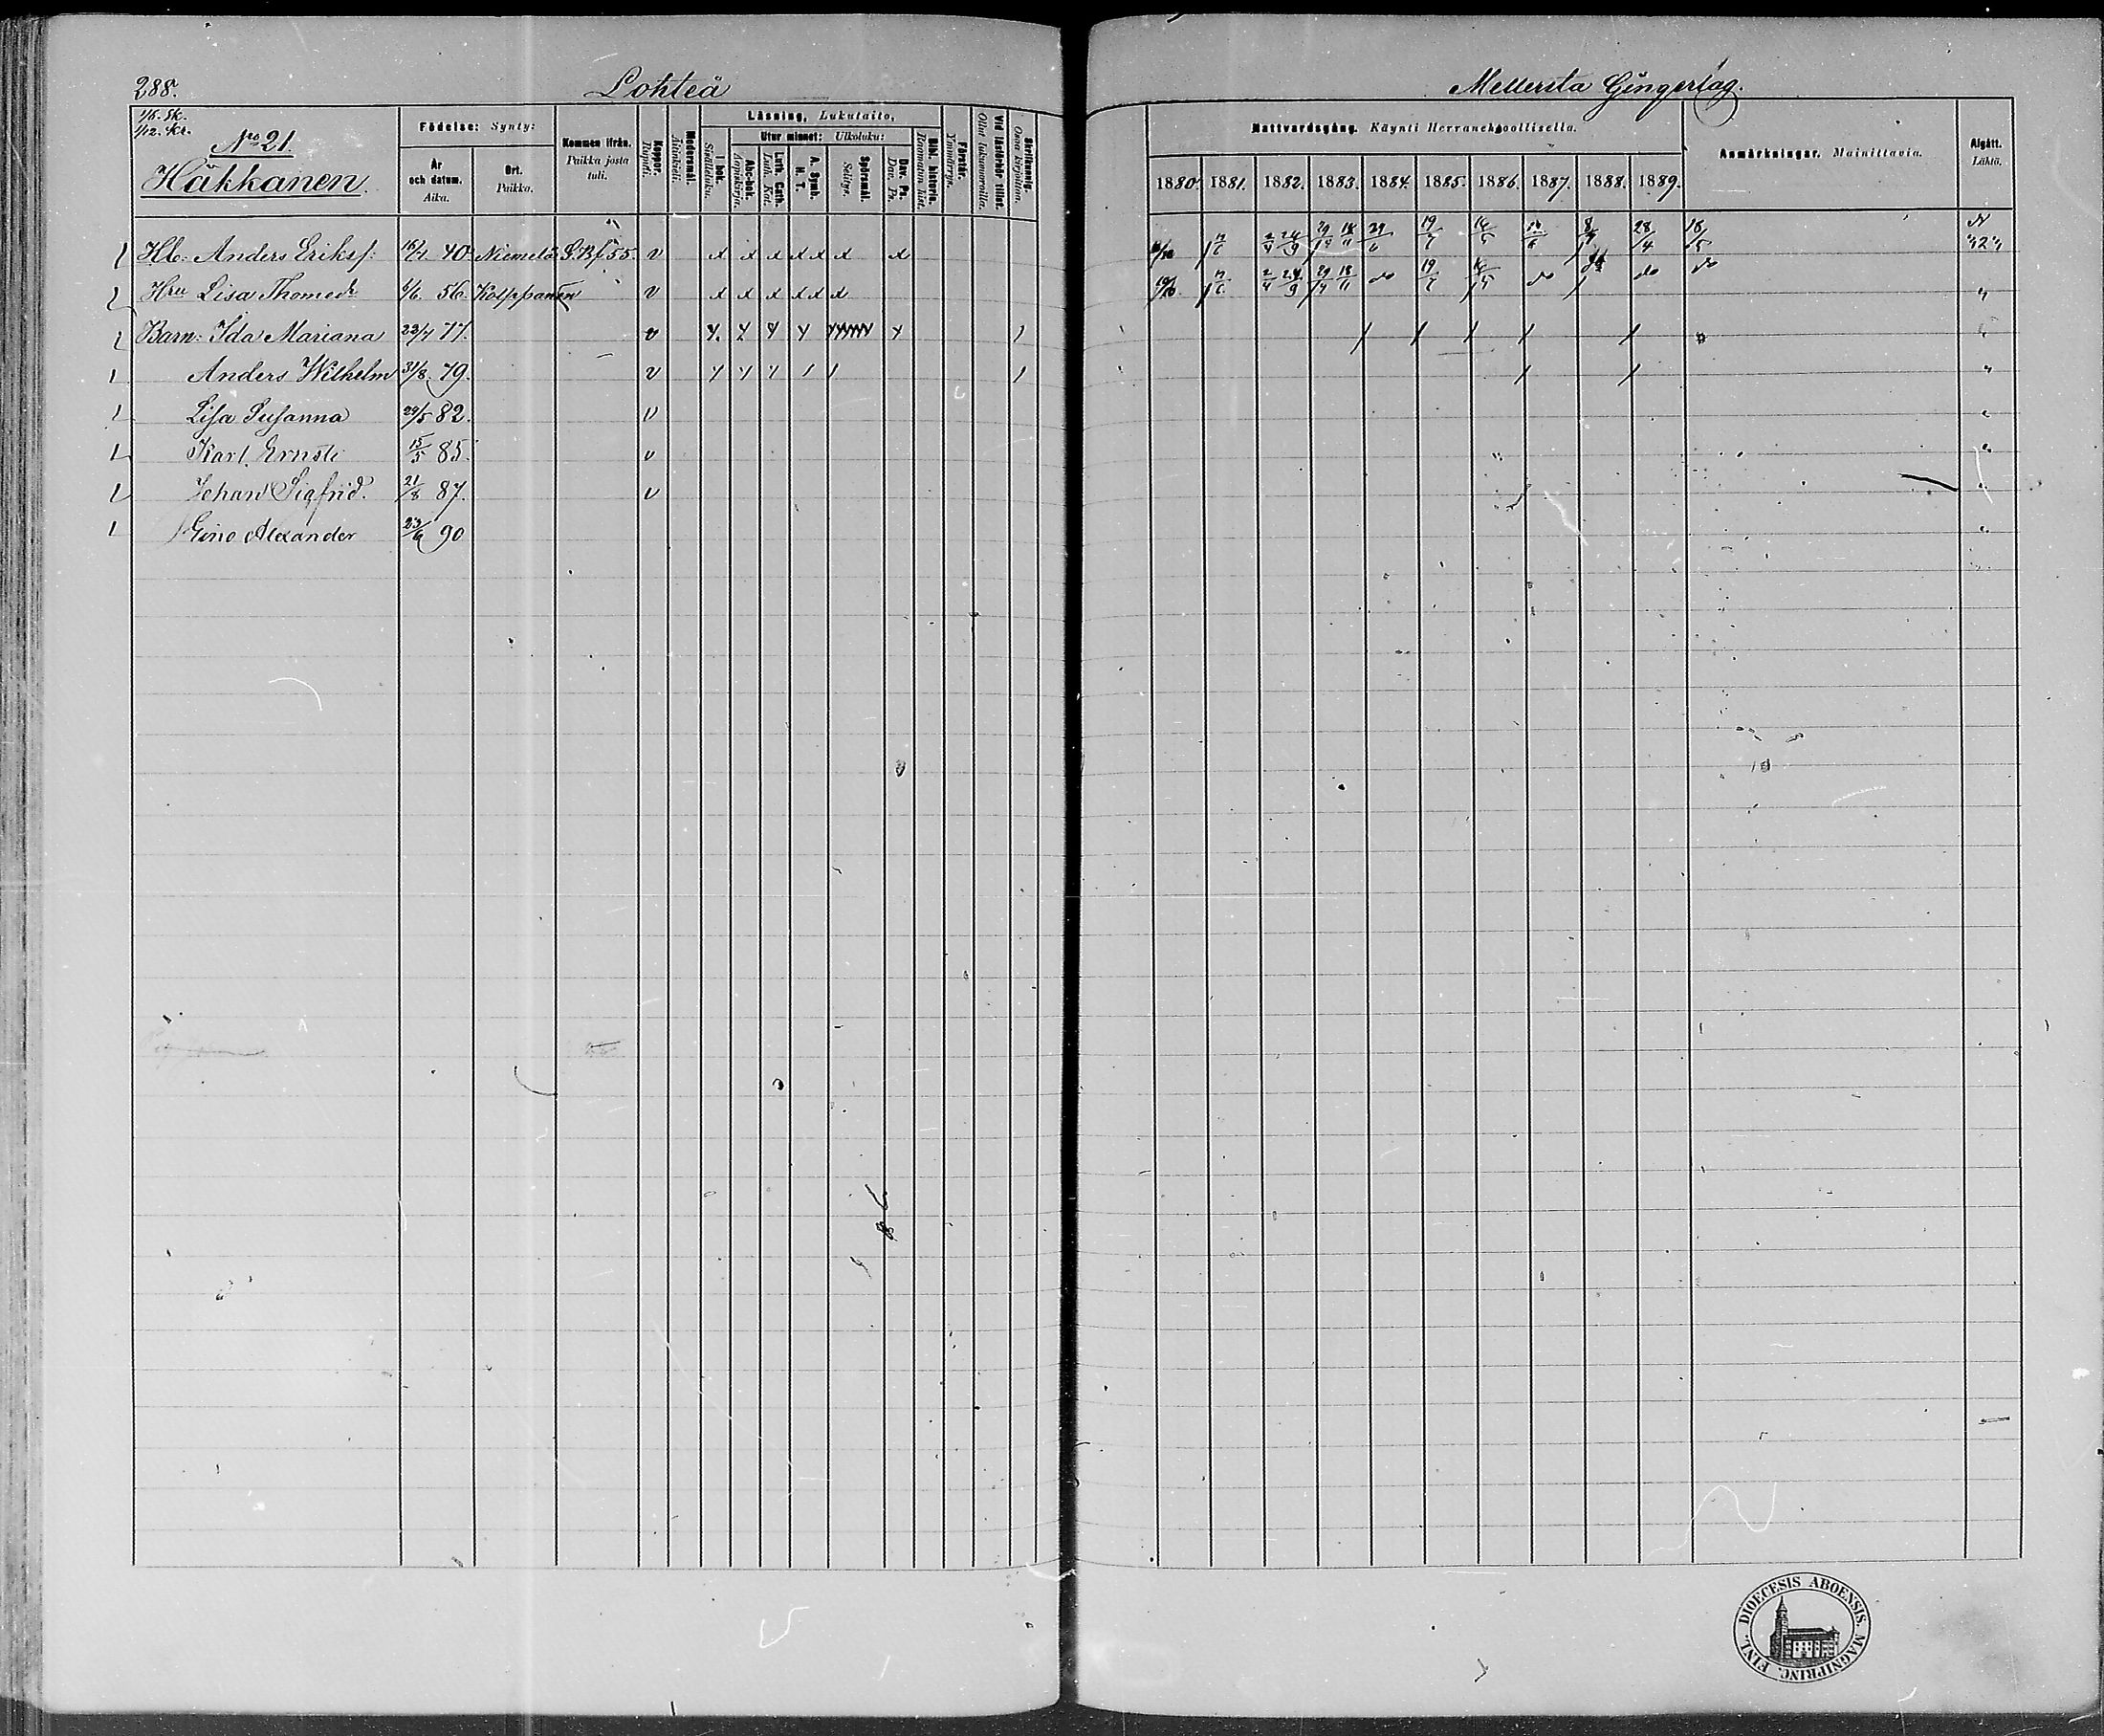 288. Lohteå Mellersta Gingerlag.
1/5. Sk.
1/12. Kr.
No 21.
Häkkänen.
Födelse: Synty:
År och datum. Aika.
Ort. Paikka.
Kommen ifrån. Paikka josta tuli.
Koppor. Rupuli.
Modersmål. Äitinkieli.
Läsning, Lukutaito,
I bok. Sisältäluku.
Utur minnet: Ulkoluku:
Abc-bok. Aapiskirja.
Luth. Cath. Luth. Kat.
A. Symb. H. T.
Spörsmål. Selitys.
Dav. Ps. Dav. Ps.
Bibl. historia. Raamatun hist.
Förstår. Ymmärrys.
Vid läsförhör tillst. Ollut lukuvuoroilla.
Skrifkunnig. Osaa kirjoittaa.
Nattvardsgång. Käynti Herranehtoollisella.
1880. 1881. 1882. 1883. 1884. 1885. 1886. 1887. 1888. 1889.
Anmärkningar. Mainittavia.
Afgått. Lähtö.
Hb: Anders Eriks f: 16/4 40 Niemelä S.Bf 55. v x x x x x x x
Hru Lisa Thomedr 6/6. 56. Kolppanen v x x x x x x
Barn: Ida Mariana 23/4 77. v
Anders Wilhelm 31/8 79. v
Lisa Susanna 29/5 82. v
Karl Ernsti 15/5 85. v
Johan Sigfrid. 21/8 87. v
Eino Alexander 23/6 90
DIOECESIS ABOENSIS MAGNI PRINC. FINL.